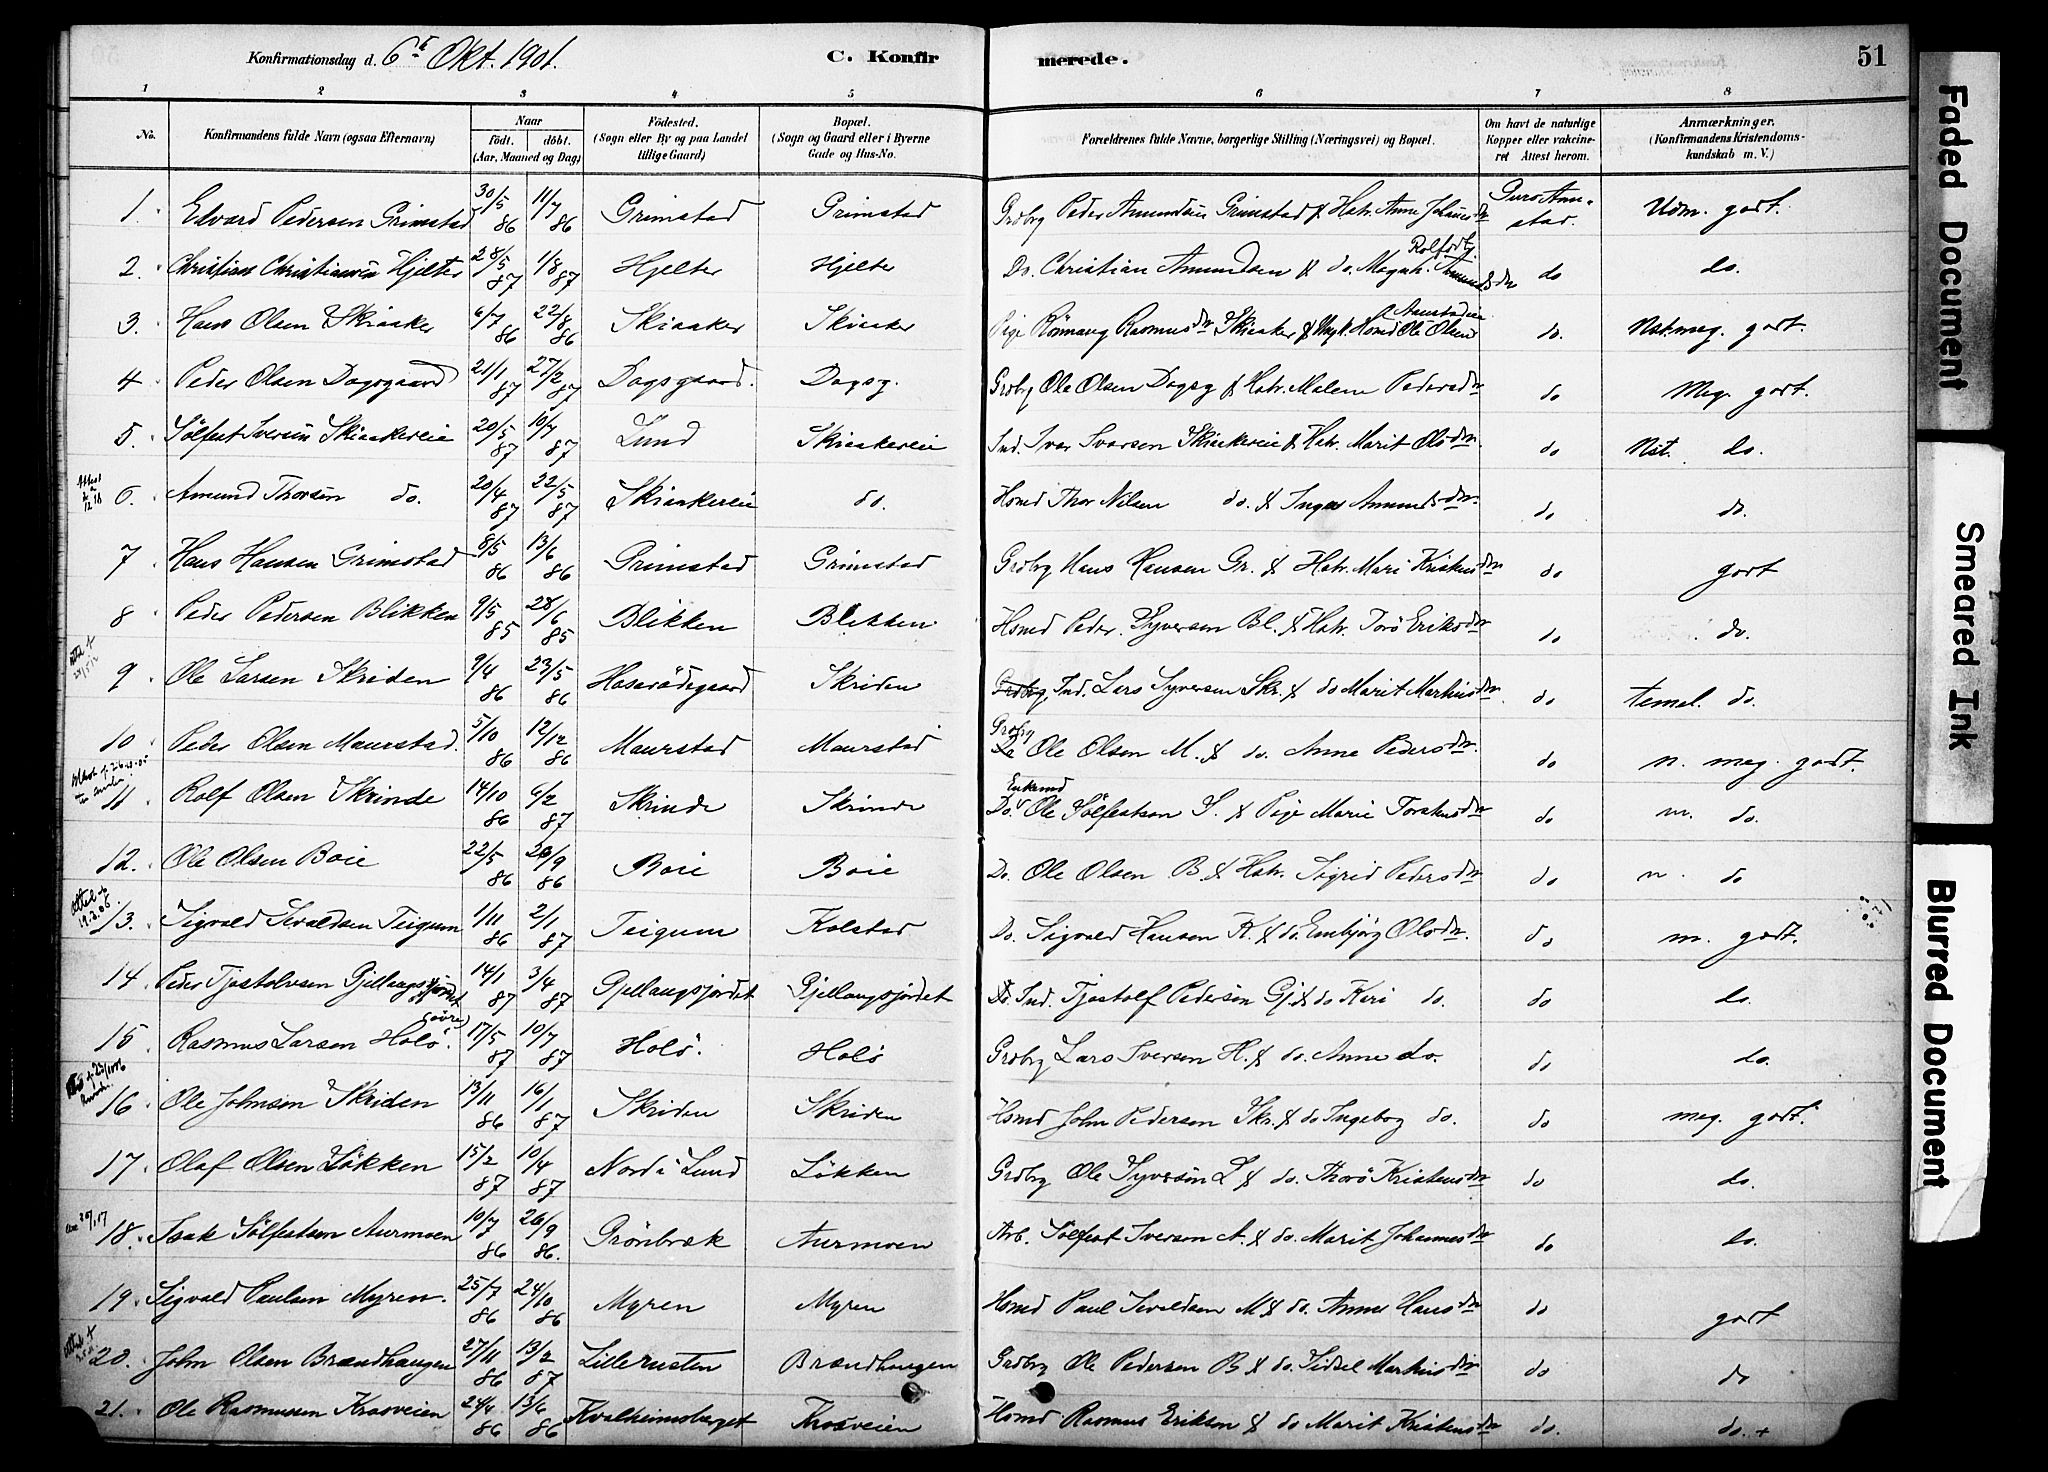 Konfirmationsdag d. 6te Okt. 1901. C. Konfirmerede. 51
1 2 3 4 5 6 7 8
No. Konfirmandens fulde Navn (ogsaa Efternavn) Naar født. døbt. (Aar, Maaned og Dag) Fødested. (Sogn eller By og paa Landet tillige Gaard) Bopæl. (Sogn og Gaard eller i Byerne Gade og Hus-No. Forældrenes fulde Navne, borgerlige Stilling (Næringsvei) og Bopæl. Om havt de naturlige Kopper eller vakcineret Attest herom. Anmærkninger. (Konfirmandens Kristendomskundskab m. V.)
1. Edvard Pedersen Grimstad 30/5 86 11/7 86 Grimstad Grimstad Grdbr Peder Amundsen Grimstad & Hstr. Anne Johansdr Udm. godt.
2. Christian Christiansen Hjelter 28/5 87 1/8 87 Hjelter Hjelter Do. Christian Amundsen & do. Magnh. Amundsdr do do.
3. Hans Olsen Skiaaker 6/7 86 22/8 86 Skiaaker Skiaaker Pige Rønnaug Rasmusdr Skiaaker & Ugk. Ole Olsen do. Nst. meg. godt.
4 Peder Olsen Dagsgaard 21/1 87 27/2 87 Dagsgaard. Dagsg. Grdbr Ole Olsen Dagsg & Hstr. Malene Pedersdr do Meg. godt.
5. Sølfest Iversen Skiaakereie 20/5 87 10/7 87 Lund Skiaakereie Ind. Ivar Ivarsen Skiaakereie & Hstr. Marit Olsdr. do Nst. do.
6. Amund Thorsen do. 20/4 87 22/5 87 Skiaakereie do. Hsmd Thor Nilsen do. & Inga Amundsdr. do do.
7 Hans Hansen Grimstad 8/5 86 13/6 86 Grimstad Grimstad Grdbr Hans Hansen Gr. & Hstr. Mari Kristensdr do godt
8 Peder Pedersen Blikken 9/5 85 28/6 85 Blikken Blikken Hsmd Peder Syversen Bl. & Hstr. Torø Eriksdr do do.
9 Ole Larsen Skriden 9/4 86 23/5 86 Skriden Ind. Lars Syversen Skr. & do Marit Mathisdr do temel. do.
10 Peder Olsen Maurstad. 5/10 86 12/12 86 Maurstad Maurstad Grdbr Ole Olsen M. & do. Anne Pedersdr. do n. meg. godt.
11 Rolf Olsen Skrinde 14/10 86 6/2 87 Skrinde Skrinde Do. Enkemd Ole Sølfestsen S. & Pige Marie Torstensdr do m. do.
12. Ole Olsen Boie 22/5 86 26/9 86 Boie Boie Do. Ole Olsen B. & Hstr. Sigrid Pedersdr do n. do
13. Sigvald Sivaldsen Teigum 1/11 86 2/1 87 Teigum Kolstad Do. Sigvald Hansen K. & do. Embjørg Olsdr. do m. godt.
14 Peder Tjøstolvsen Gjellangsjordet 14/1 87 3/4 87 Gjellangsjordet Gjellangsjordet Ind. Tjøstolf Pedersen Gj. & do Kari do. do do.
15 Rasmus Larsen Holø. (øvre) 17/5 87 10/7 87 Holø. Holø Grdbr Lars Iversen H. & do. Anne do. do do.
16 Ole Johnsen Skriden 13/11 86 16/1 87 Skriden Skriden Hsmd John Pedersen Skr. & do Ingeborg do. do meg. godt.
17. Olaf Olsen Løkken 15/2 87 10/4 87 Nordi Lund Løkken Grdbr Ole Syversen L & do. Thorø Kristensdr do do.
18. Isak Sølfestsen Aurmoen 10/7 86 26/9 86. Grönbræk Aurmoen Arb. Sølfest Iversen A. & do. Marit Johannesdr do do.
19. Sigvald Paulsen Myren. 25/7 86 24/10 86 Myren Myren Hsmd Paul Sivaldsen M & do. Anne Hansdr do godt
20. John Olsen Brændhaugen 27/11 86 13/2 87 Lillerusten Brændhaugen Grdbr Ole Pedersen B & do. Sidsel Mathisdr do do
21. Ole Rasmussen Krosveien 24/4 86 13/6 86 Kvalheimsberget Krosveien Hsmd Rasmus Eriksen & do Marit Kristensdr do. do. +
Faded Document
Smeared Ink
Blurred Document